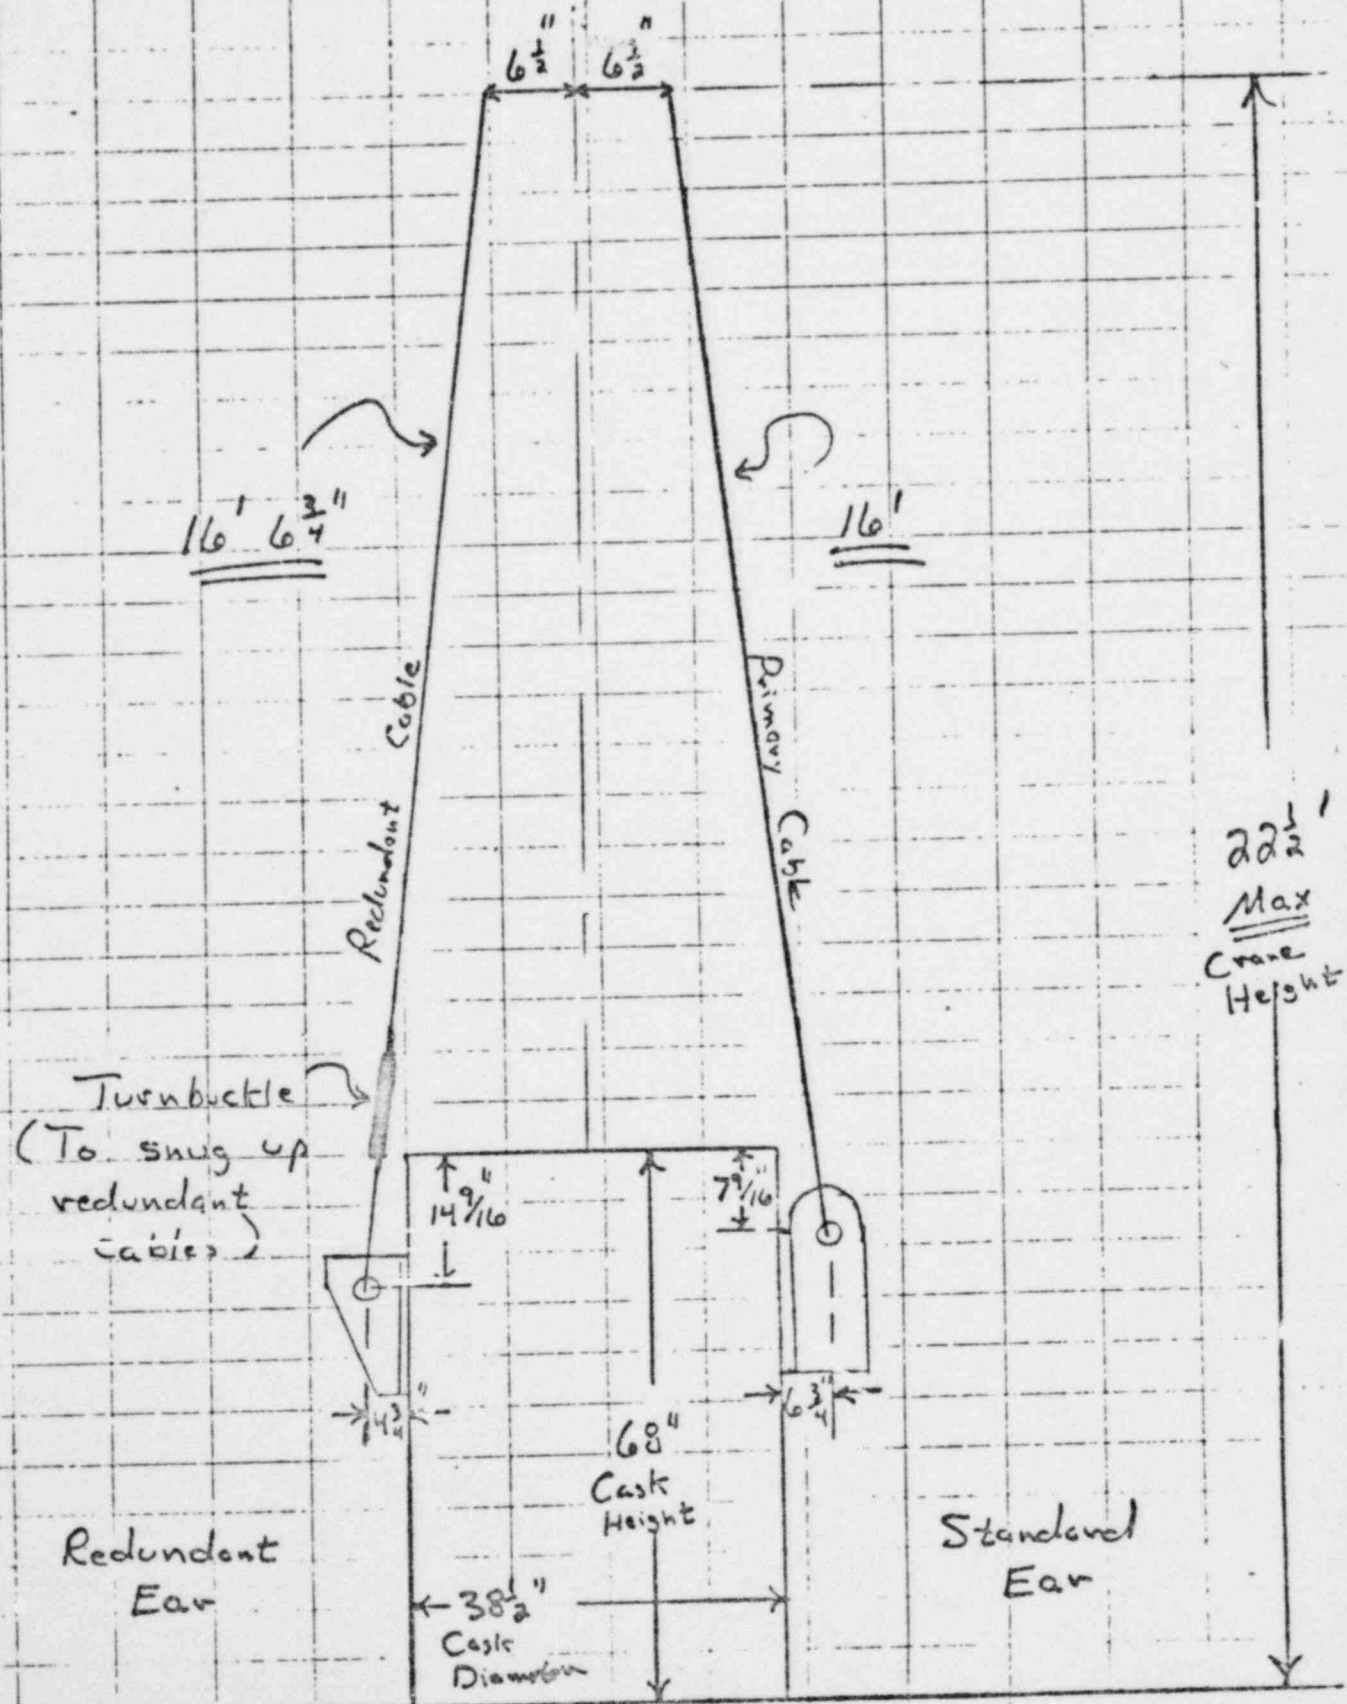 6 1/2" 6 1/2"
16' 6 3/4"
16'
Redundant Cable
Primary Cable
22 1/2'
Max
Crane
Height
Turnbuckle
(To snug up
redundant
cables)
14 9/16"
7 9/16"
6 3/4"
68"
Cask
Height
Redundant
Ear
Standard
Ear
38 1/2"
Cask
Diameter